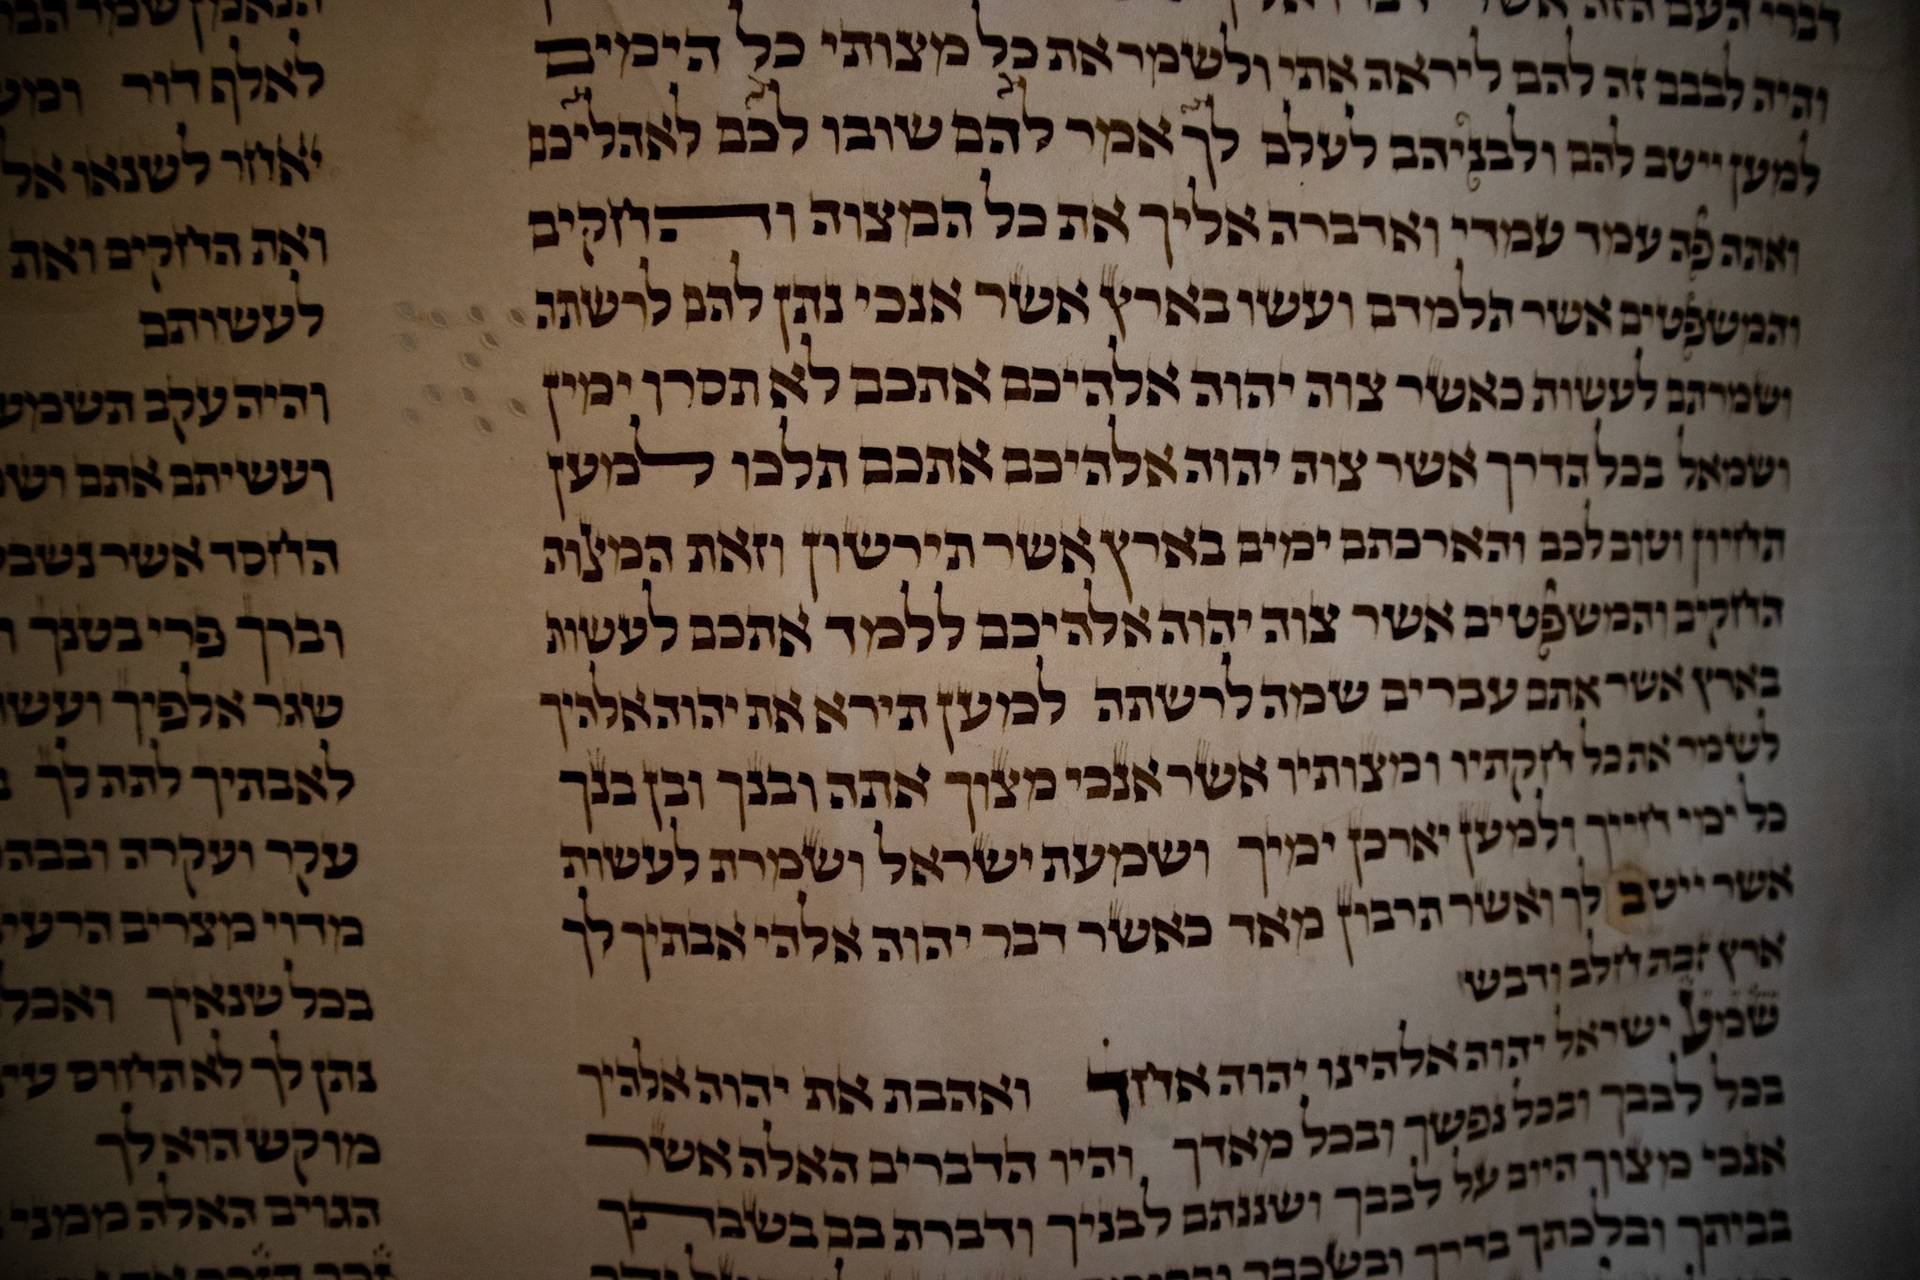 דברי העם הזה אשר
והיה לבבם זה להם ליראה אתי ולשמר את כל מצותי כל הימים
למען ייטב להם ולבניהם לעלם לך אמר להם שובו לכם לאהליכם
ואתה פה עמד עמדי ואדברה אליך את כל המצוה והחקים
והמשפטים אשר תלמדם ועשו בארץ אשר אנכי נתן להם לרשתה
ושמרתם לעשות כאשר צוה יהוה אלהיכם אתכם לא תסרו ימין
ושמאל בכל הדרך אשר צוה יהוה אלהיכם אתכם תלכו למען
תחיון וטוב לכם והארכתם ימים בארץ אשר תירשון וזאת המצוה
החקים והמשפטים אשר צוה יהוה אלהיכם ללמד אתכם לעשות
בארץ אשר אתם עברים שמה לרשתה למען תירא את יהוה אלהיך
לשמר את כל חקתיו ומצותיו אשר אנכי מצוך אתה ובנך ובן בנך
כל ימי חייך ולמען יארכן ימיך ושמעת ישראל ושמרת לעשות
אשר ייטב לך ואשר תרבון מאד כאשר דבר יהוה אלהי אבתיך לך
ארץ זבת חלב ודבש
שמע ישראל יהוה אלהינו יהוה אחד ואהבת את יהוה אלהיך
בכל לבבך ובכל נפשך ובכל מאדך והיו הדברים האלה אשר
אנכי מצוך היום על לבבך ושננתם לבניך ודברת בם בשבתך
בביתך ובלכתך בדרך ובשכבך
הנאמן שמר
לאלף דור
יאחר לשנאו
ואת החקים ואת
לעשותם
והיה עקב תשמעו
ועשיתם אתם
החסד אשר נשבע
וברך פרי בטנך
שגר אלפיך
לאבתיך לתת לך
עקר ועקרה
מדוי מצרים הרעים
בכל שנאיך
נתן לך לא תחוס
מוקש הוא לך
הגוים האלה ממני